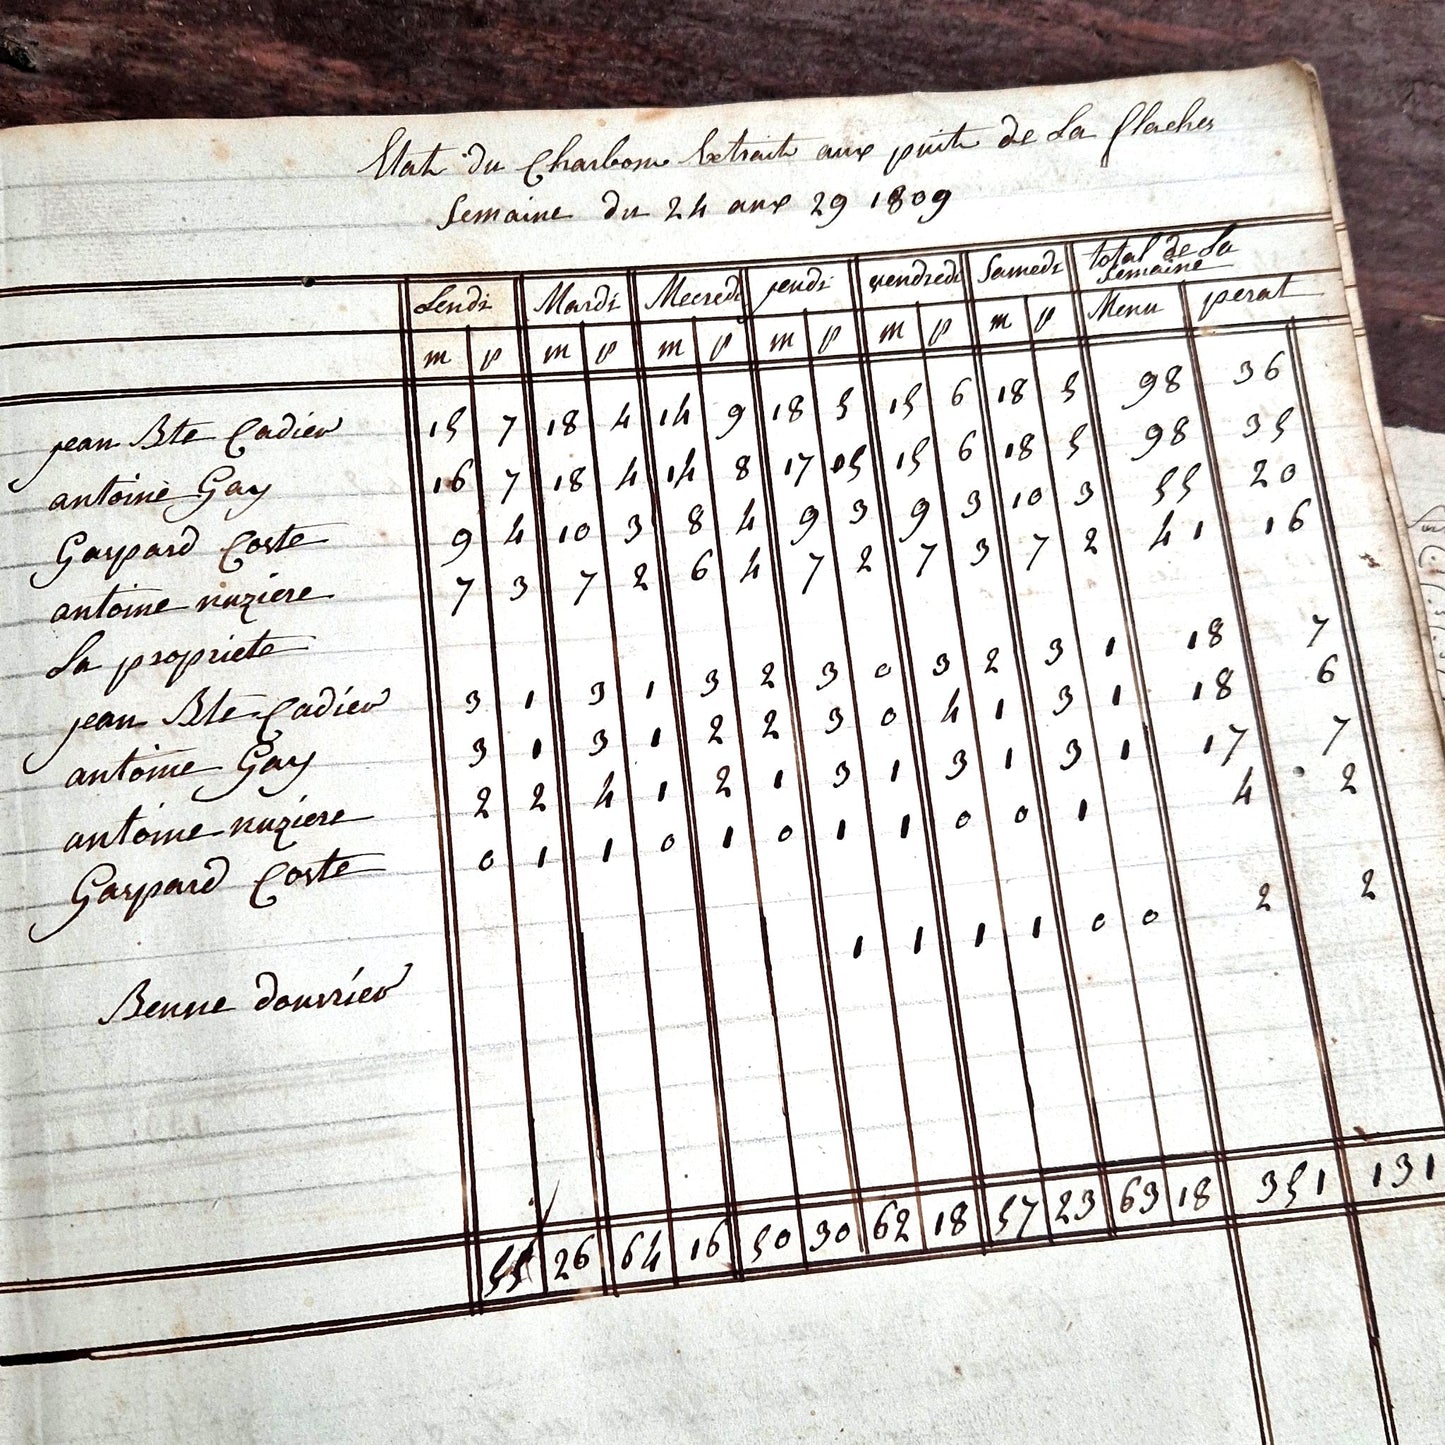 Etat du Charbom Extrait aux puit de La flaches
Semaine du 24 aux 29 1809
Lendi Mardi Mecredi jeudi vendredi Samedi total de La Semaine
m p m p m p m p m p m p Menu perat
jean Bte Cadier 15 7 18 4 14 9 18 5 15 6 18 5 98 36
antoine Gay 16 7 18 4 14 8 17 05 15 6 18 5 98 35
Gaspard Coste 9 4 10 3 8 4 9 3 9 3 10 3 55 20
antoine nuziere 7 3 7 2 6 4 7 2 7 3 7 2 41 16
La propriete
jean Bte Cadier 3 1 3 1 3 2 3 0 3 2 3 1 18 7
antoine Gay 3 1 3 1 2 2 3 0 4 1 3 1 18 6
antoine nuziere 2 2 4 1 2 1 3 1 3 1 3 1 17 7
Gaspard Coste 0 1 1 0 1 0 1 1 0 0 1 4 2
Benne douvrier 1 1 1 1 0 0 2 2
55 26 64 16 50 30 62 18 57 23 63 18 351 131